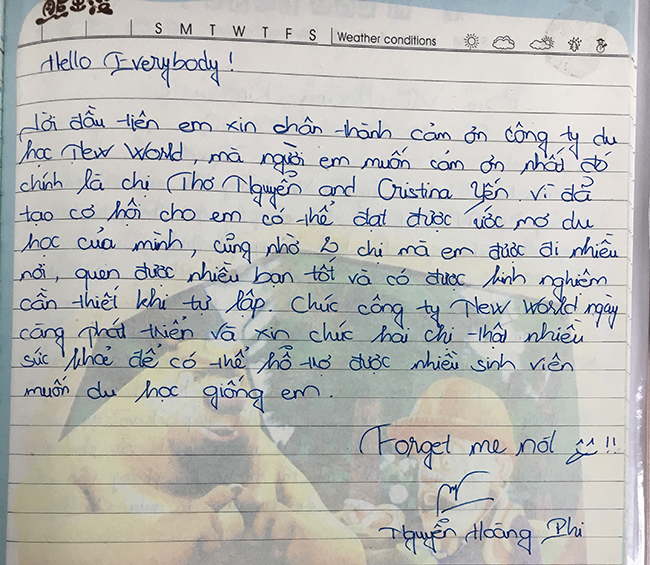 熊出没
S M T W T F S Weather conditions
Hello Everybody!
Lời đầu tiên em xin chân thành cảm ơn công ty du
học New World, mà người em muốn cám ơn nhất đó
chính là chị Thơ Nguyễn and Cristina Yến. Vì đã
tạo cơ hội cho em có thể đạt được ước mơ du
học của mình, cũng nhờ 2 chị mà em được đi nhiều
nơi, quen được nhiều bạn tốt và có được kinh nghiệm
cần thiết khi tự lập. Chúc công ty New World ngày
càng phát triển và xin chúc hai chị thật nhiều
sức khoẻ để có thể hỗ trợ được nhiều sinh viên
muốn du học giống em.
Forget me nót !!
Nguyễn Hoàng Phi